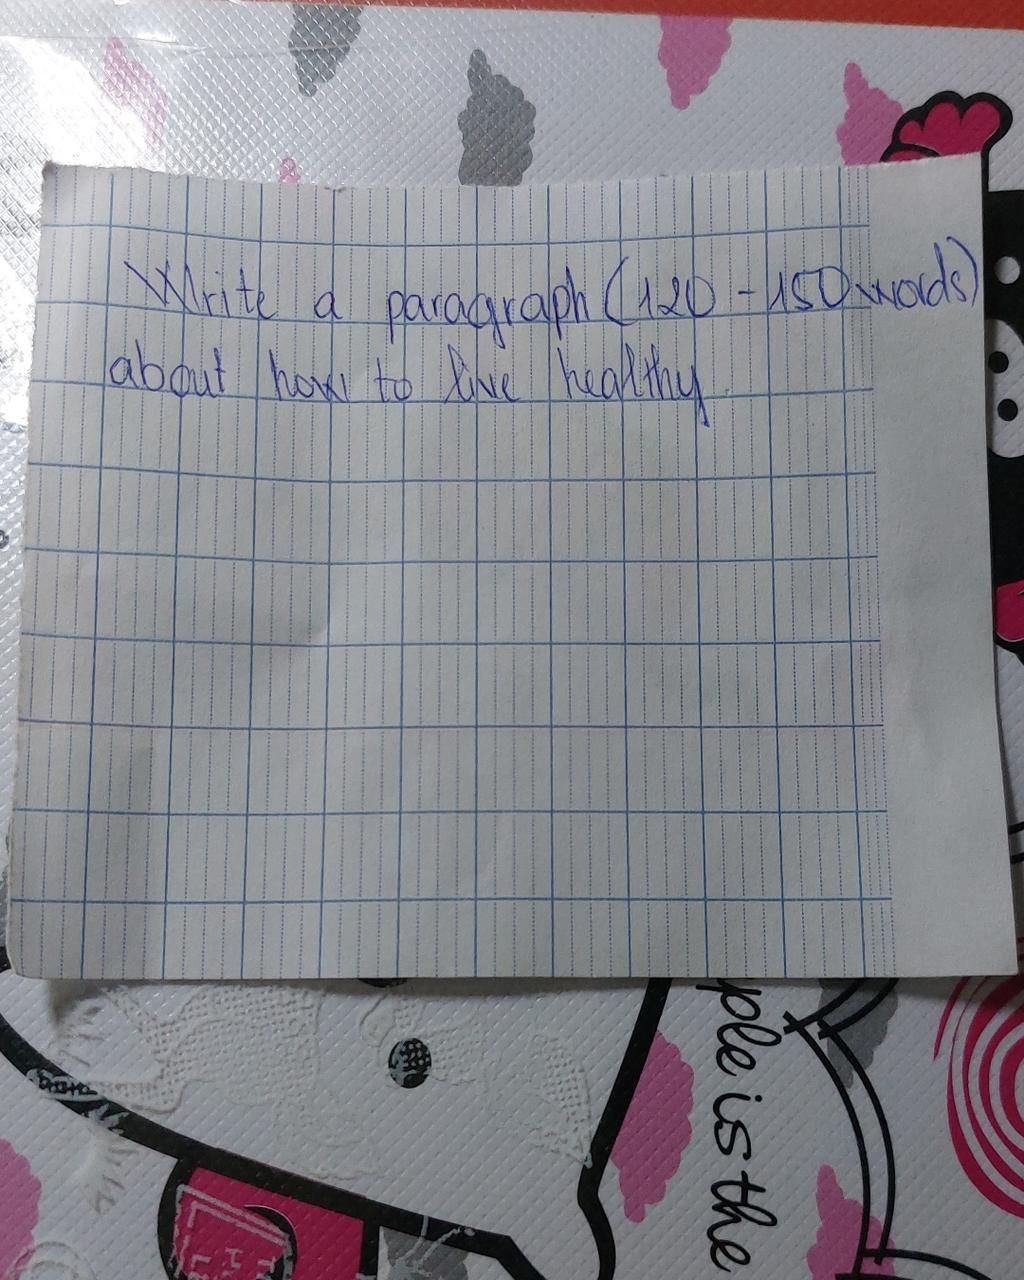 Write a paragraph (120 - 150 words)
about how to live healthy.
ple is the